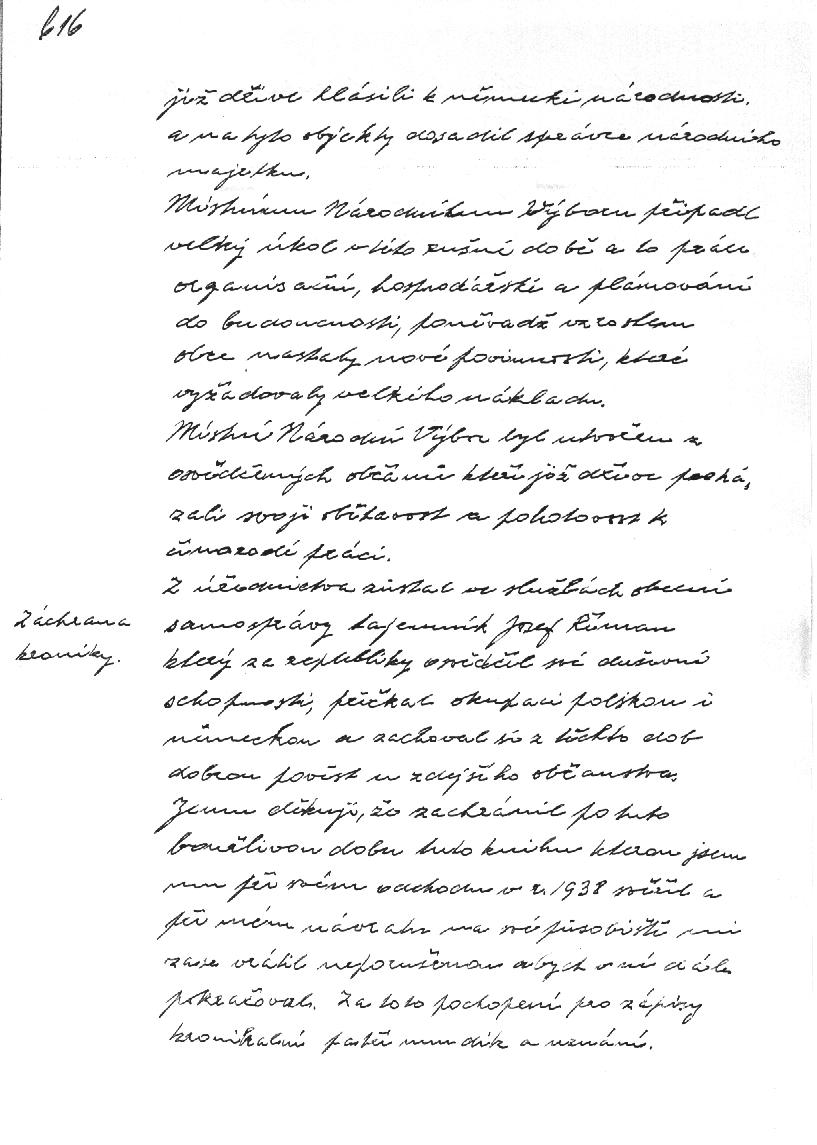 616
již dříve hlásili k německé národnosti.
a na tyto objekty dosadil správce národního
majetku.
Místnímu Národnímu Výboru připadl
velký úkol v této rušné době a to práce
organisační, hospodářské a plánování
do budoucnosti, poněvadž vzrostem
obce nastaly nové povinnosti, které
vyžadovaly velkého nákladu.
Místní Národní Výbor byl utvořen z
osvědčených občanů kteří již dříve poká,
zali svoji obětavost a pohotovost k
činorodé práci.
Z úřednictva zůstal ve službách obecní
Záchrana
kroniky.
samosprávy tajemník Josef Řiman
který za republiky osvědčil své duševní
schopnosti, přečkal okupaci polskou i
německou a zachoval si z těchto dob
dobrou pověst u zdejšího občanstva.
Jemu děkuji, že zachránil po tuto
bouřlivou dobu tuto knihu kterou jsem
mu při svém odchodu v r. 1938 svěřil a
při mém návratu na své působiště mi
zase vrátil neporušenou abych v ní dále
pokračoval. Za toto pochopení pro zápisy
kronikální patří mu dík a uznání.